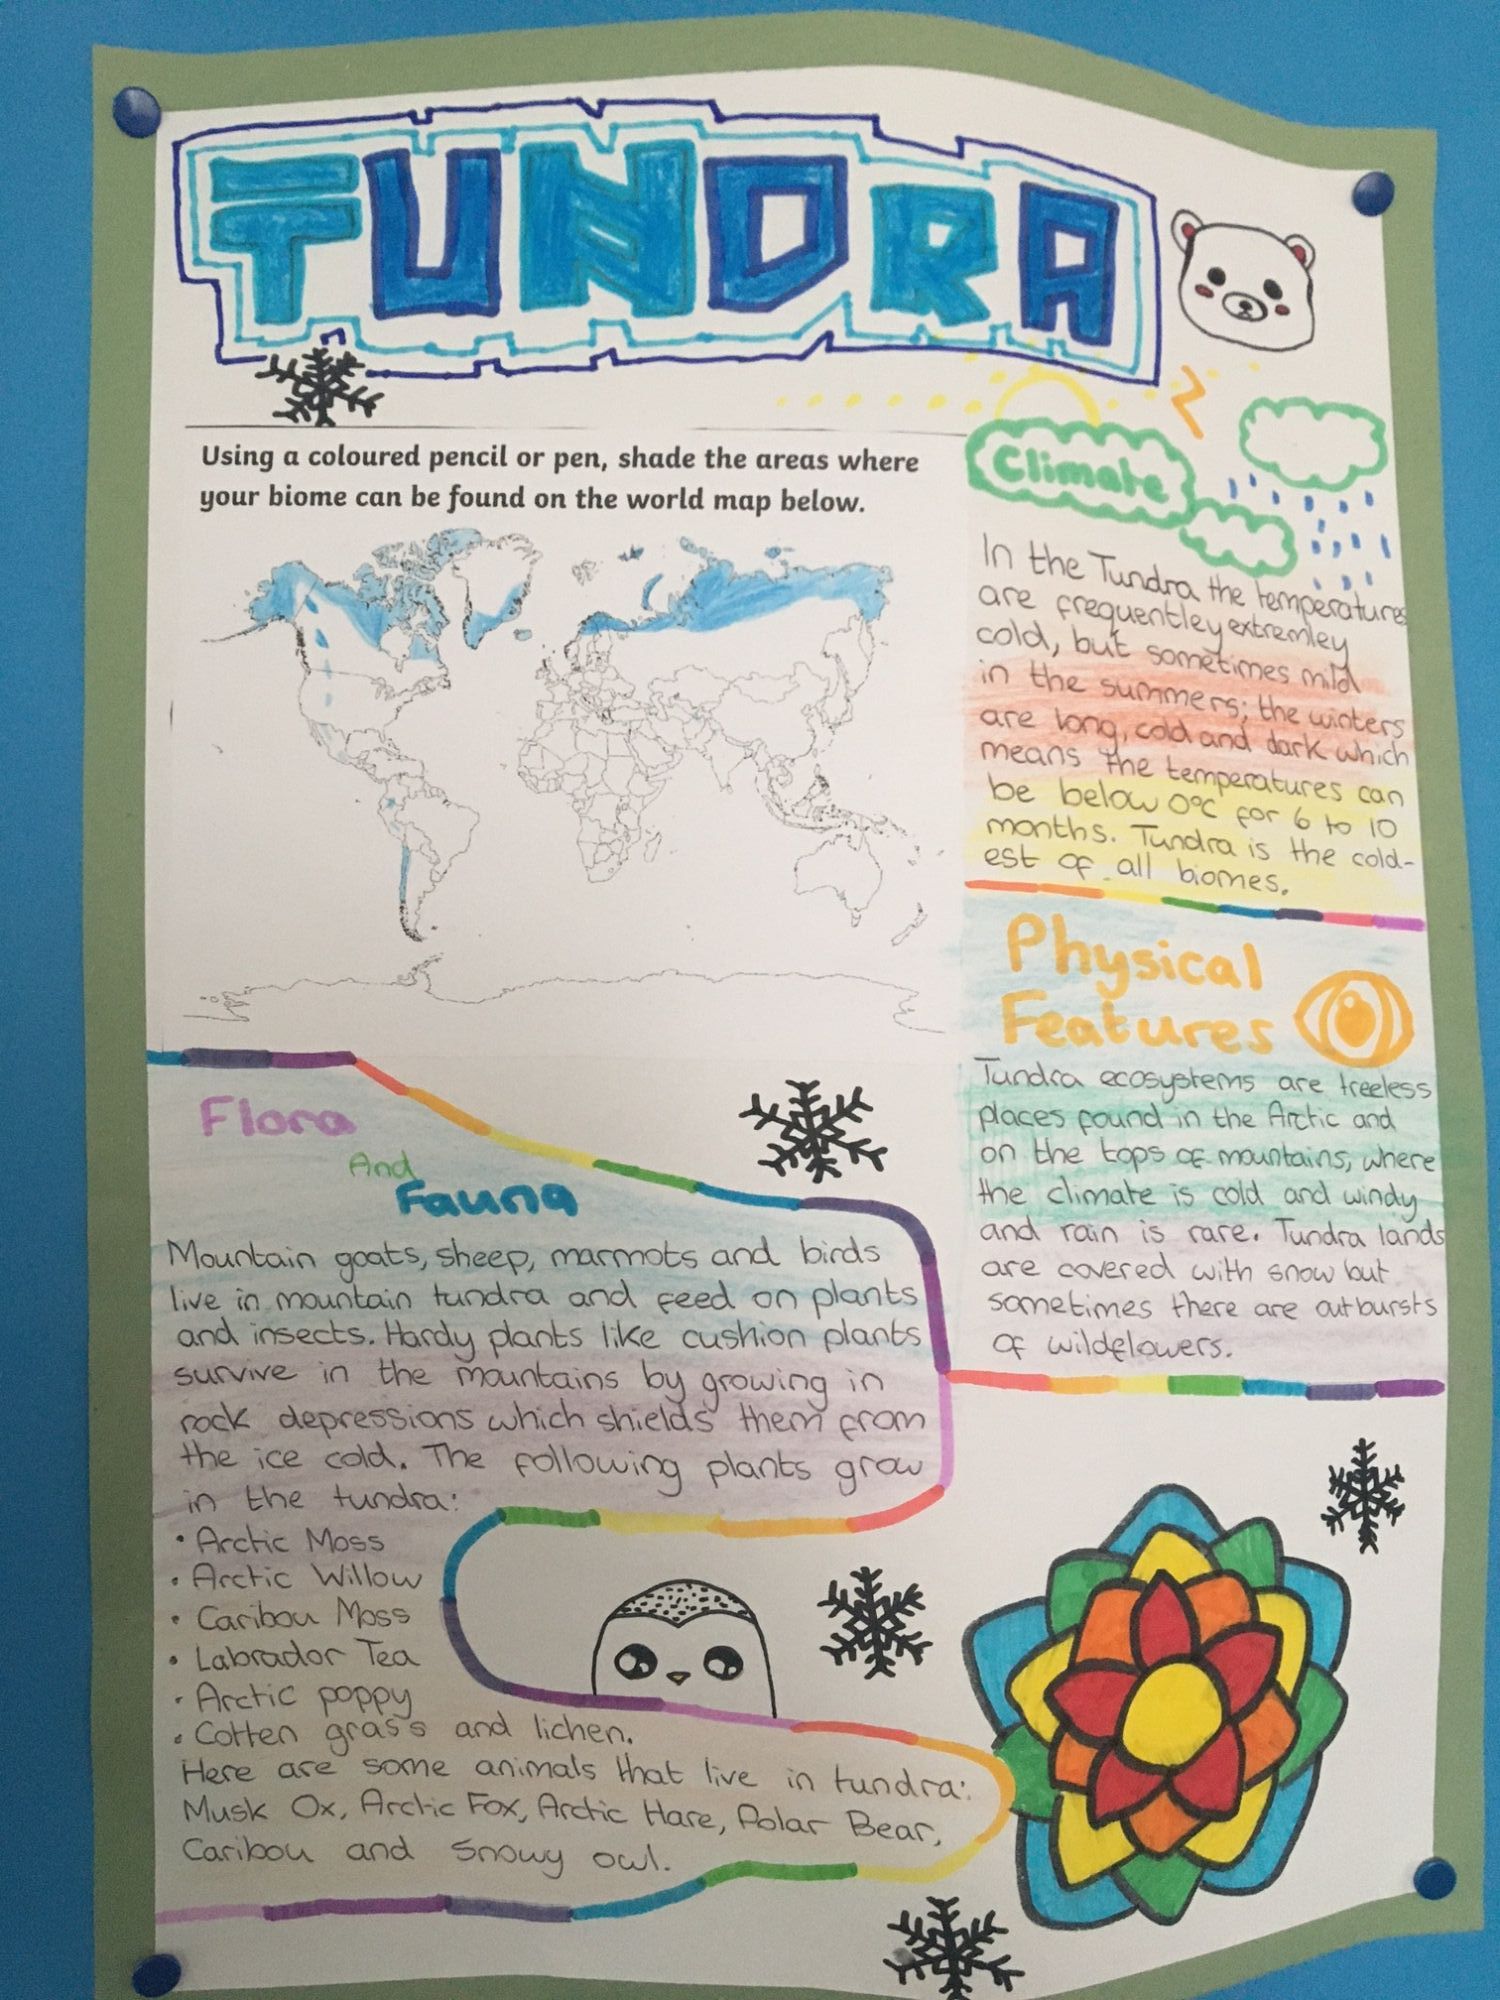 TUNDRA
Using a coloured pencil or pen, shade the areas where
your biome can be found on the world map below.
Climate
In the Tundra the temperatures
are frequentley extremley
cold, but sometimes mild
in the summers; the winters
are long, cold and dark which
means the temperatures can
be below 0°C for 6 to 10
months. Tundra is the cold-
est of all biomes.
Physical
Features
Tundra ecosystems are treeless
places found in the Arctic and
on the tops of mountains, where
the climate is cold and windy
and rain is rare. Tundra lands
are covered with snow but
sometimes there are outbursts
of wildeflowers.
Flora
And
Fauna
Mountain goats, sheep, marmots and birds
live in mountain tundra and feed on plants
and insects. Hardy plants like cushion plants
survive in the mountains by growing in
rock depressions which shields them from
the ice cold. The following plants grow
in the tundra:
• Arctic Moss
• Arctic Willow
• Caribou Moss
• Labrador Tea
• Arctic poppy
• Cotten grass and lichen.
Here are some animals that live in tundra:
Musk Ox, Arctic Fox, Arctic Hare, Polar Bear,
Caribou and Snowy owl.